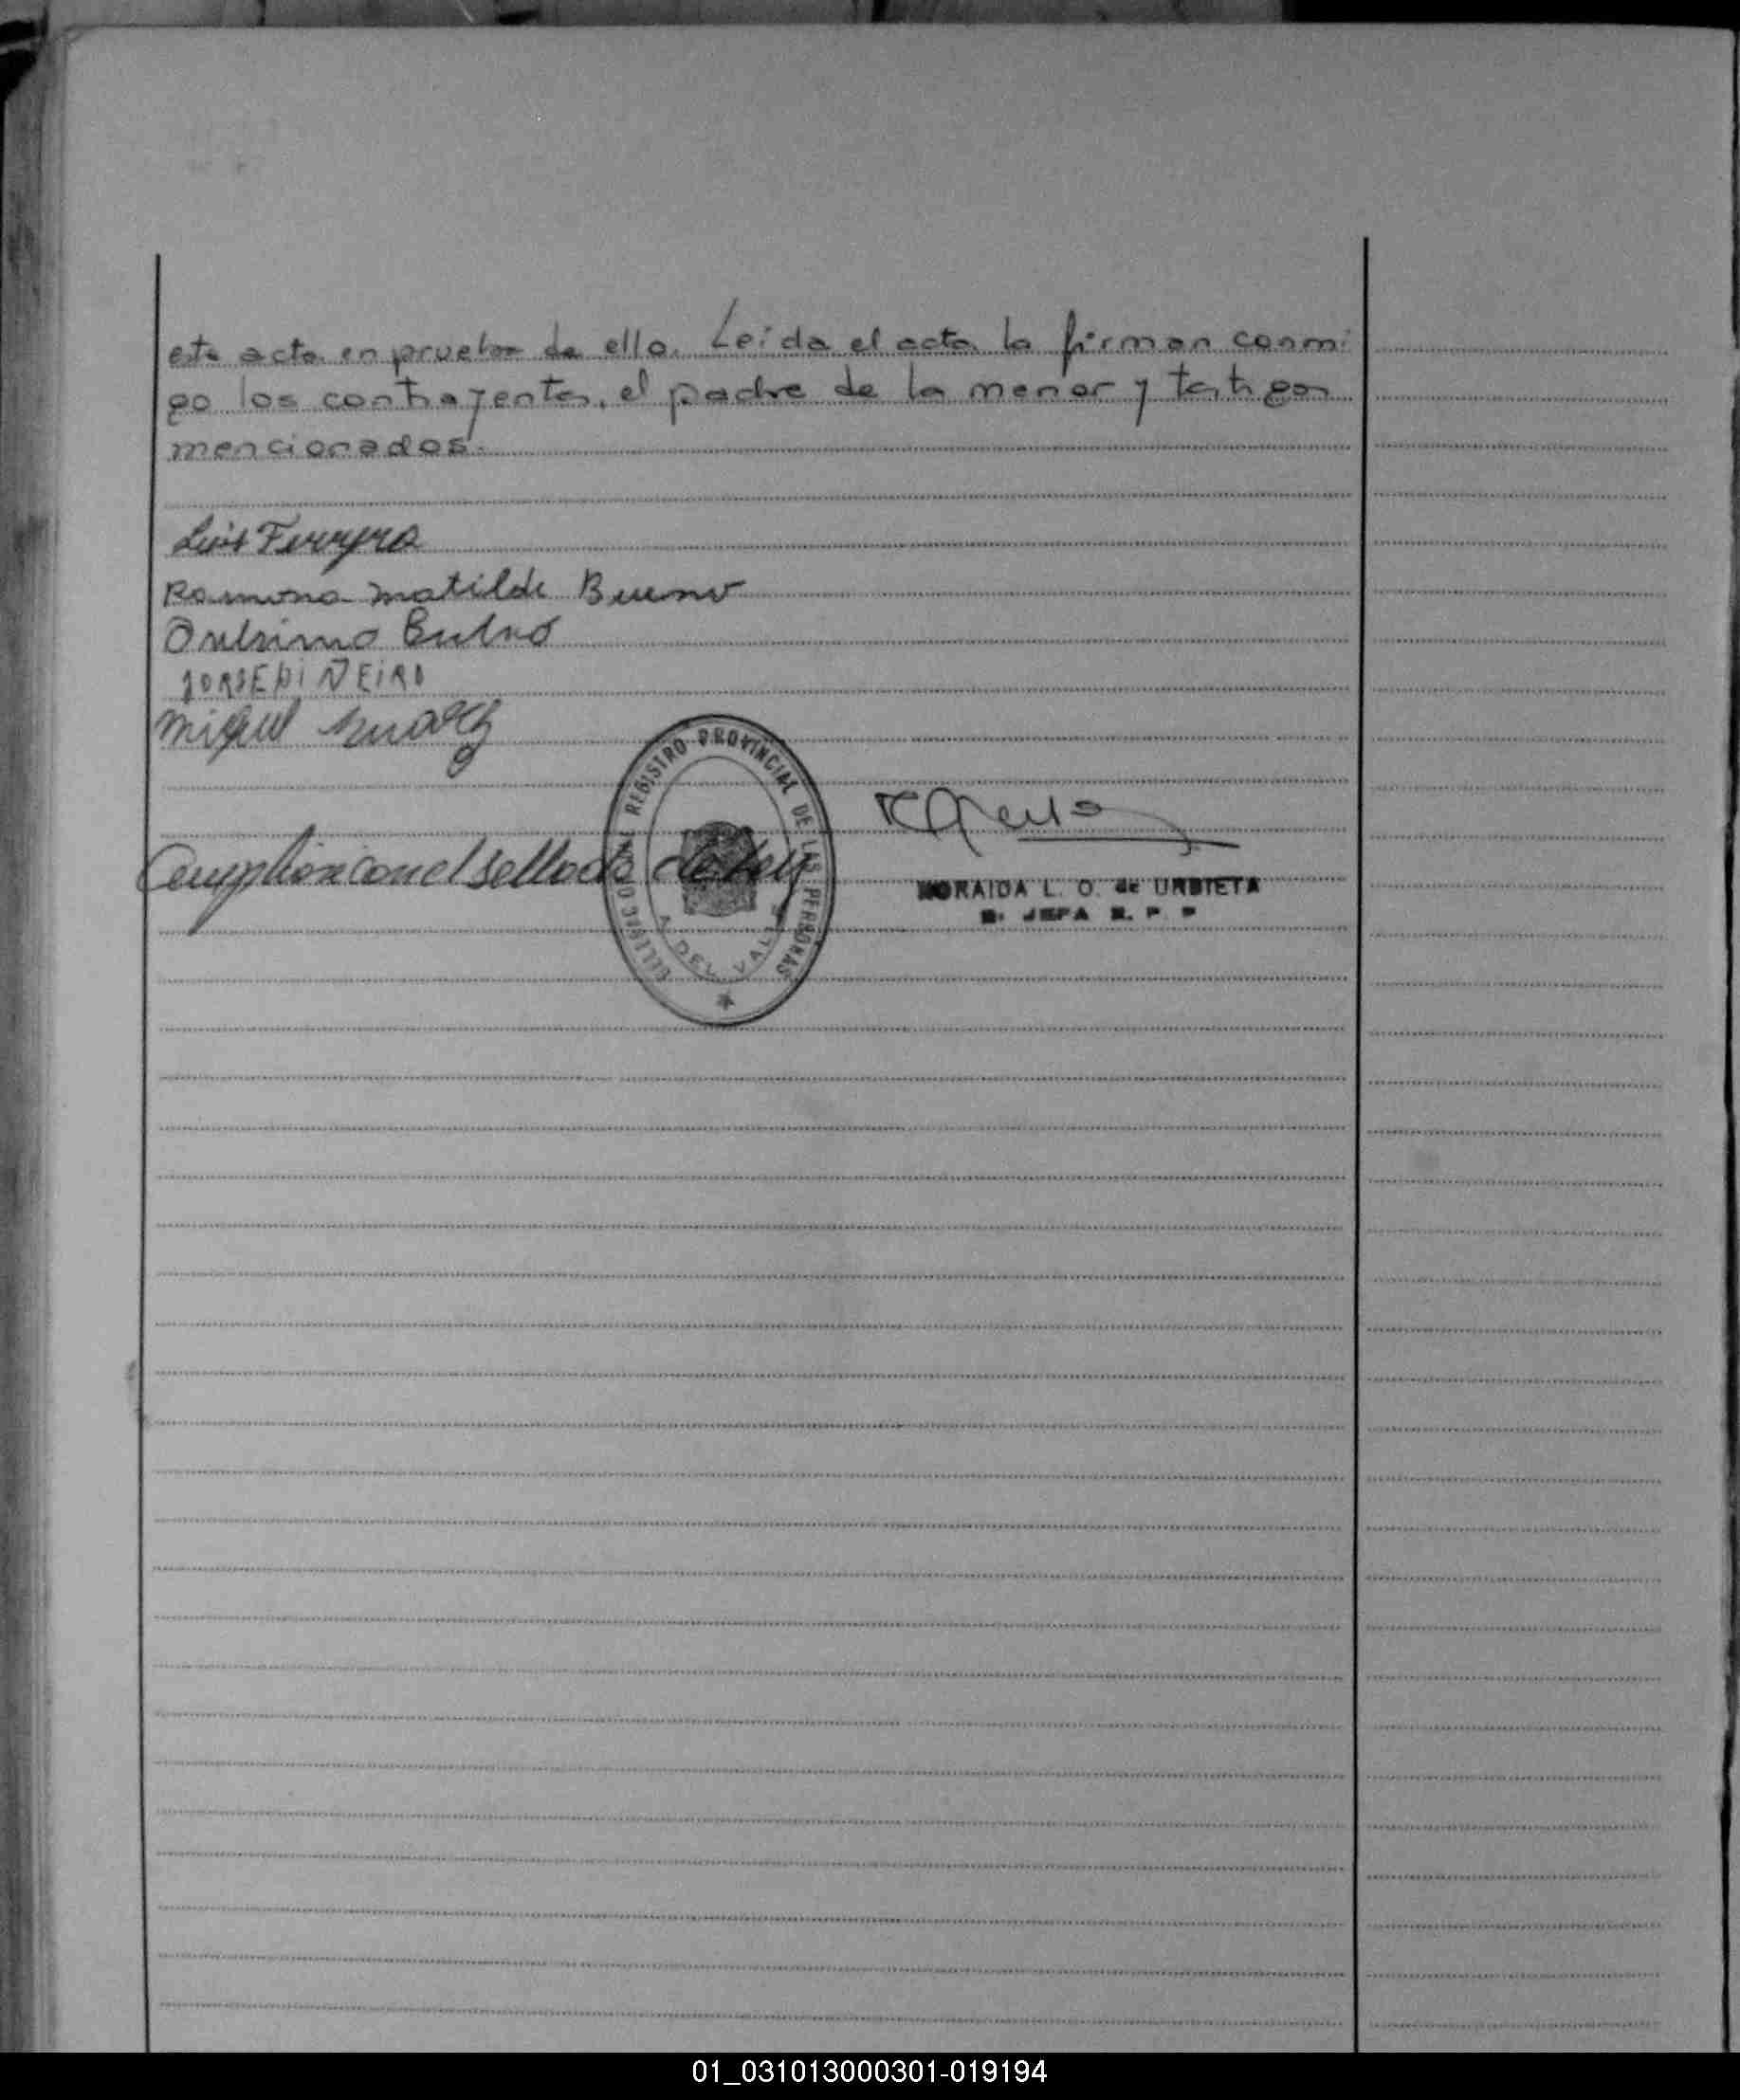 este acto en prueba de ello. Leída el acta la firman conmi
go los contrayentes, el padre de la menor y testigos
mencionados.
Luis Ferreyra
Ramona Matilde Bueno
Onésimo Bueno
JORGE PIÑEIRO
Miguel
REGISTRO PROVINCIAL DE LAS PERSONAS
SECCIONAL
DEL VALLE
Cumplió con el sellado de ley
NORAIDA L. O. de URBIETA
JEFA R. P. P
01_031013000301-019194